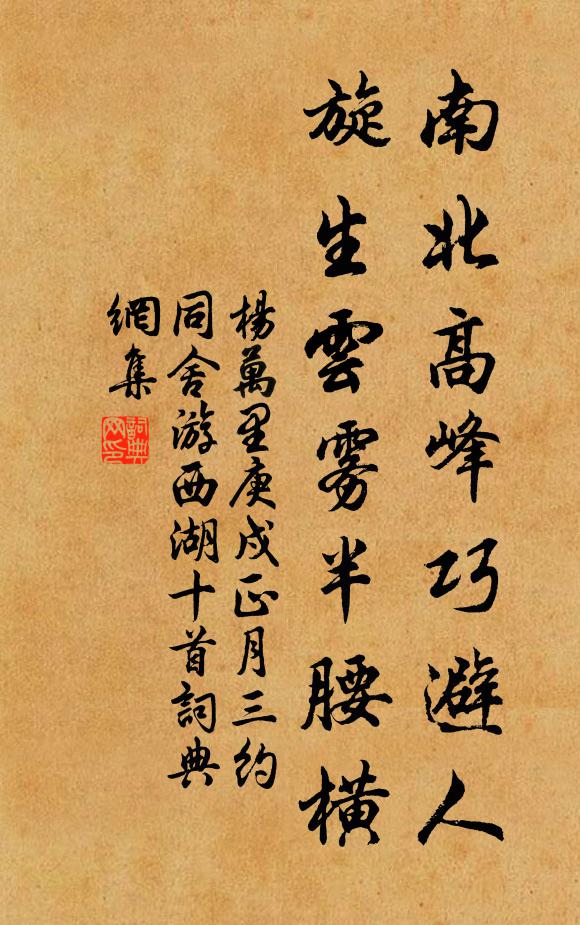 南北高峰巧避人
旋生雲霧半腰橫
楊萬里庚戌正月三約
同舍游西湖十首詞典
網集
詞典
网印